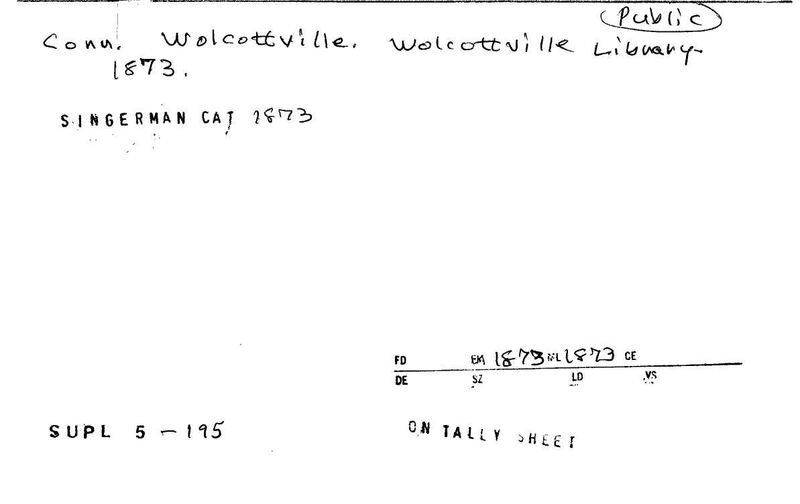 Public
Conn. Wolcottville. Wolcottville Library
1873.
SINGERMAN CAT 1873
FD EM 1873 ML 1873 CE
DE SZ LD VS
SUPL 5 - 195
ON TALLY SHEET